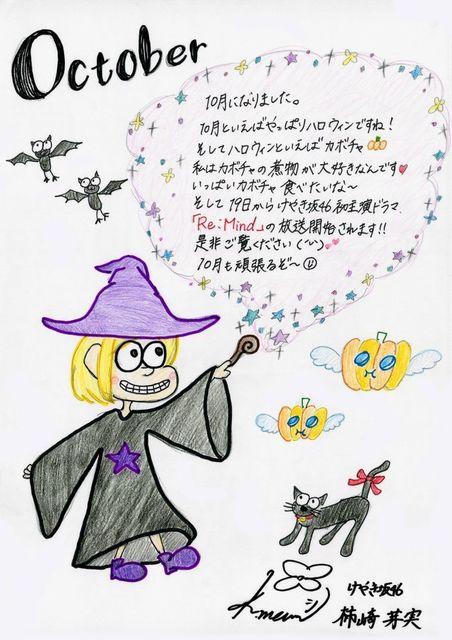 October
10月になりました。
10月といえばやっぱりハロウィンですね!
そしてハロウィンといえばカボチャ
私はカボチャの煮物が大好きなんです
いっぱいカボチャ食べたいな〜
そして19日からけやき坂46初主演ドラマ
「Re:Mind」の放送開始されます!!
是非ご覧ください(^^)
10月も頑張るぞ〜
けやき坂46
柿崎芽実